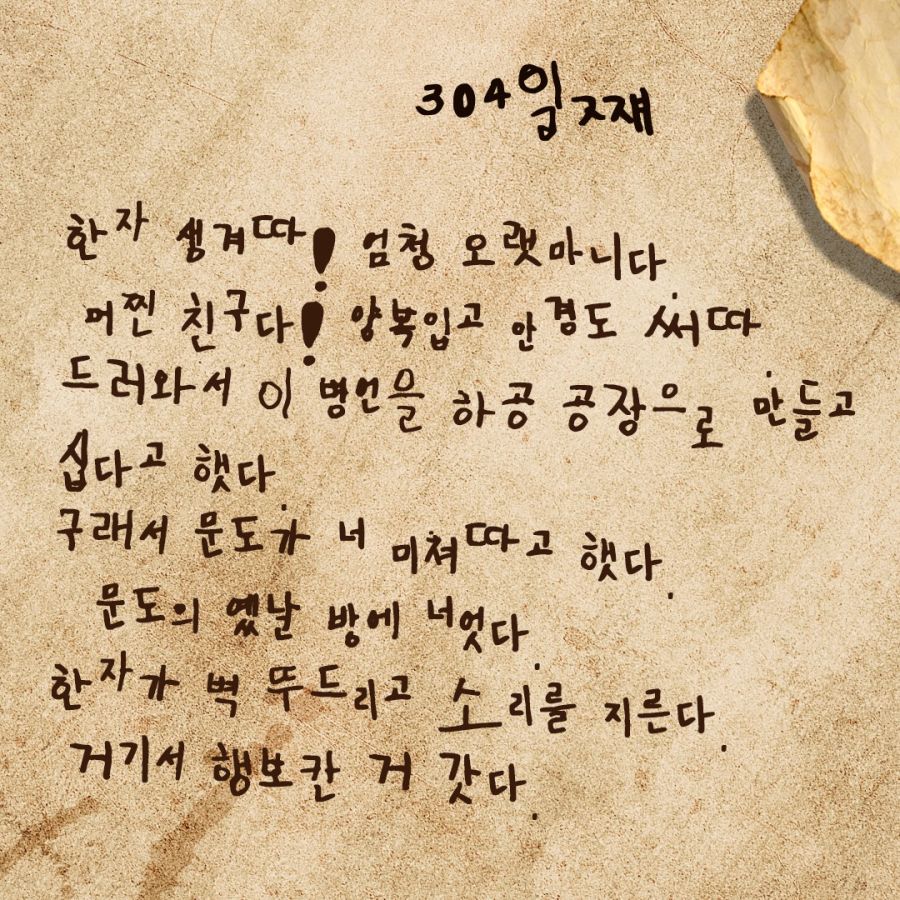 304일 째
한자 생겨따! 엄청 오랫마니다
머찐 친구다! 양복입고 안경도 써따.
드러와서 이 병언을 하공 공장으로 만들고
십다고 했다.
구래서 문도가 너 미쳐따고 했다.
문도의 옜날 방에 너엇다.
한자가 벽 뚜드리고 소리를 지른다.
거기서 행보칸 거 갓다.